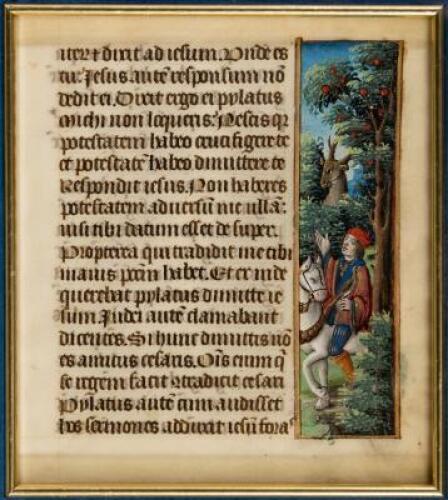 iterū dixit ad iesum. Unde es
tu. Jesus autē responsum nō
dedit ei. Dixit ergo ei pylatus
michi non loqueris: Nescis qr
potestatem habeo crucifigere te
et potestatē habeo dimittere te
Respondit iesus. Non haberes
potestatem adversū me ullā:
nisi tibi datum esset de super.
Propterea qui tradidit me tibi
maius pctm̄ habet. Et ex inde
querebat pylatus dimitte ie
sum. Judei autē clamabant
dicentes. Si hunc dimittis nō
es amicus cesaris. Ois̄ enim q̄
se regem facit ɔtradicit cesari
Pylatus autē cum audisset
hos sermones adduxit iesū foras